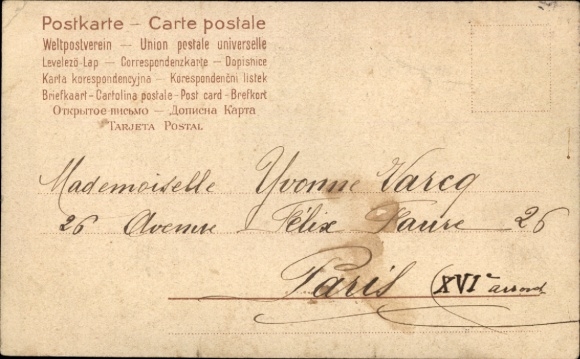 Postkarte — Carte postale
Weltpostverein — Union postale universelle
Levelező-Lap — Correspondenzkarte — Dopisnice
Karta korespondencyjna — Korespondenční listek
Briefkaart - Cartolina postale - Post card - Brefkort
Открытое письмо — Дописна Карта
Tarjeta Postal
Mademoiselle Yvonne Varcq
26 Avenue Félix Faure 26
Paris (XVIe arrond